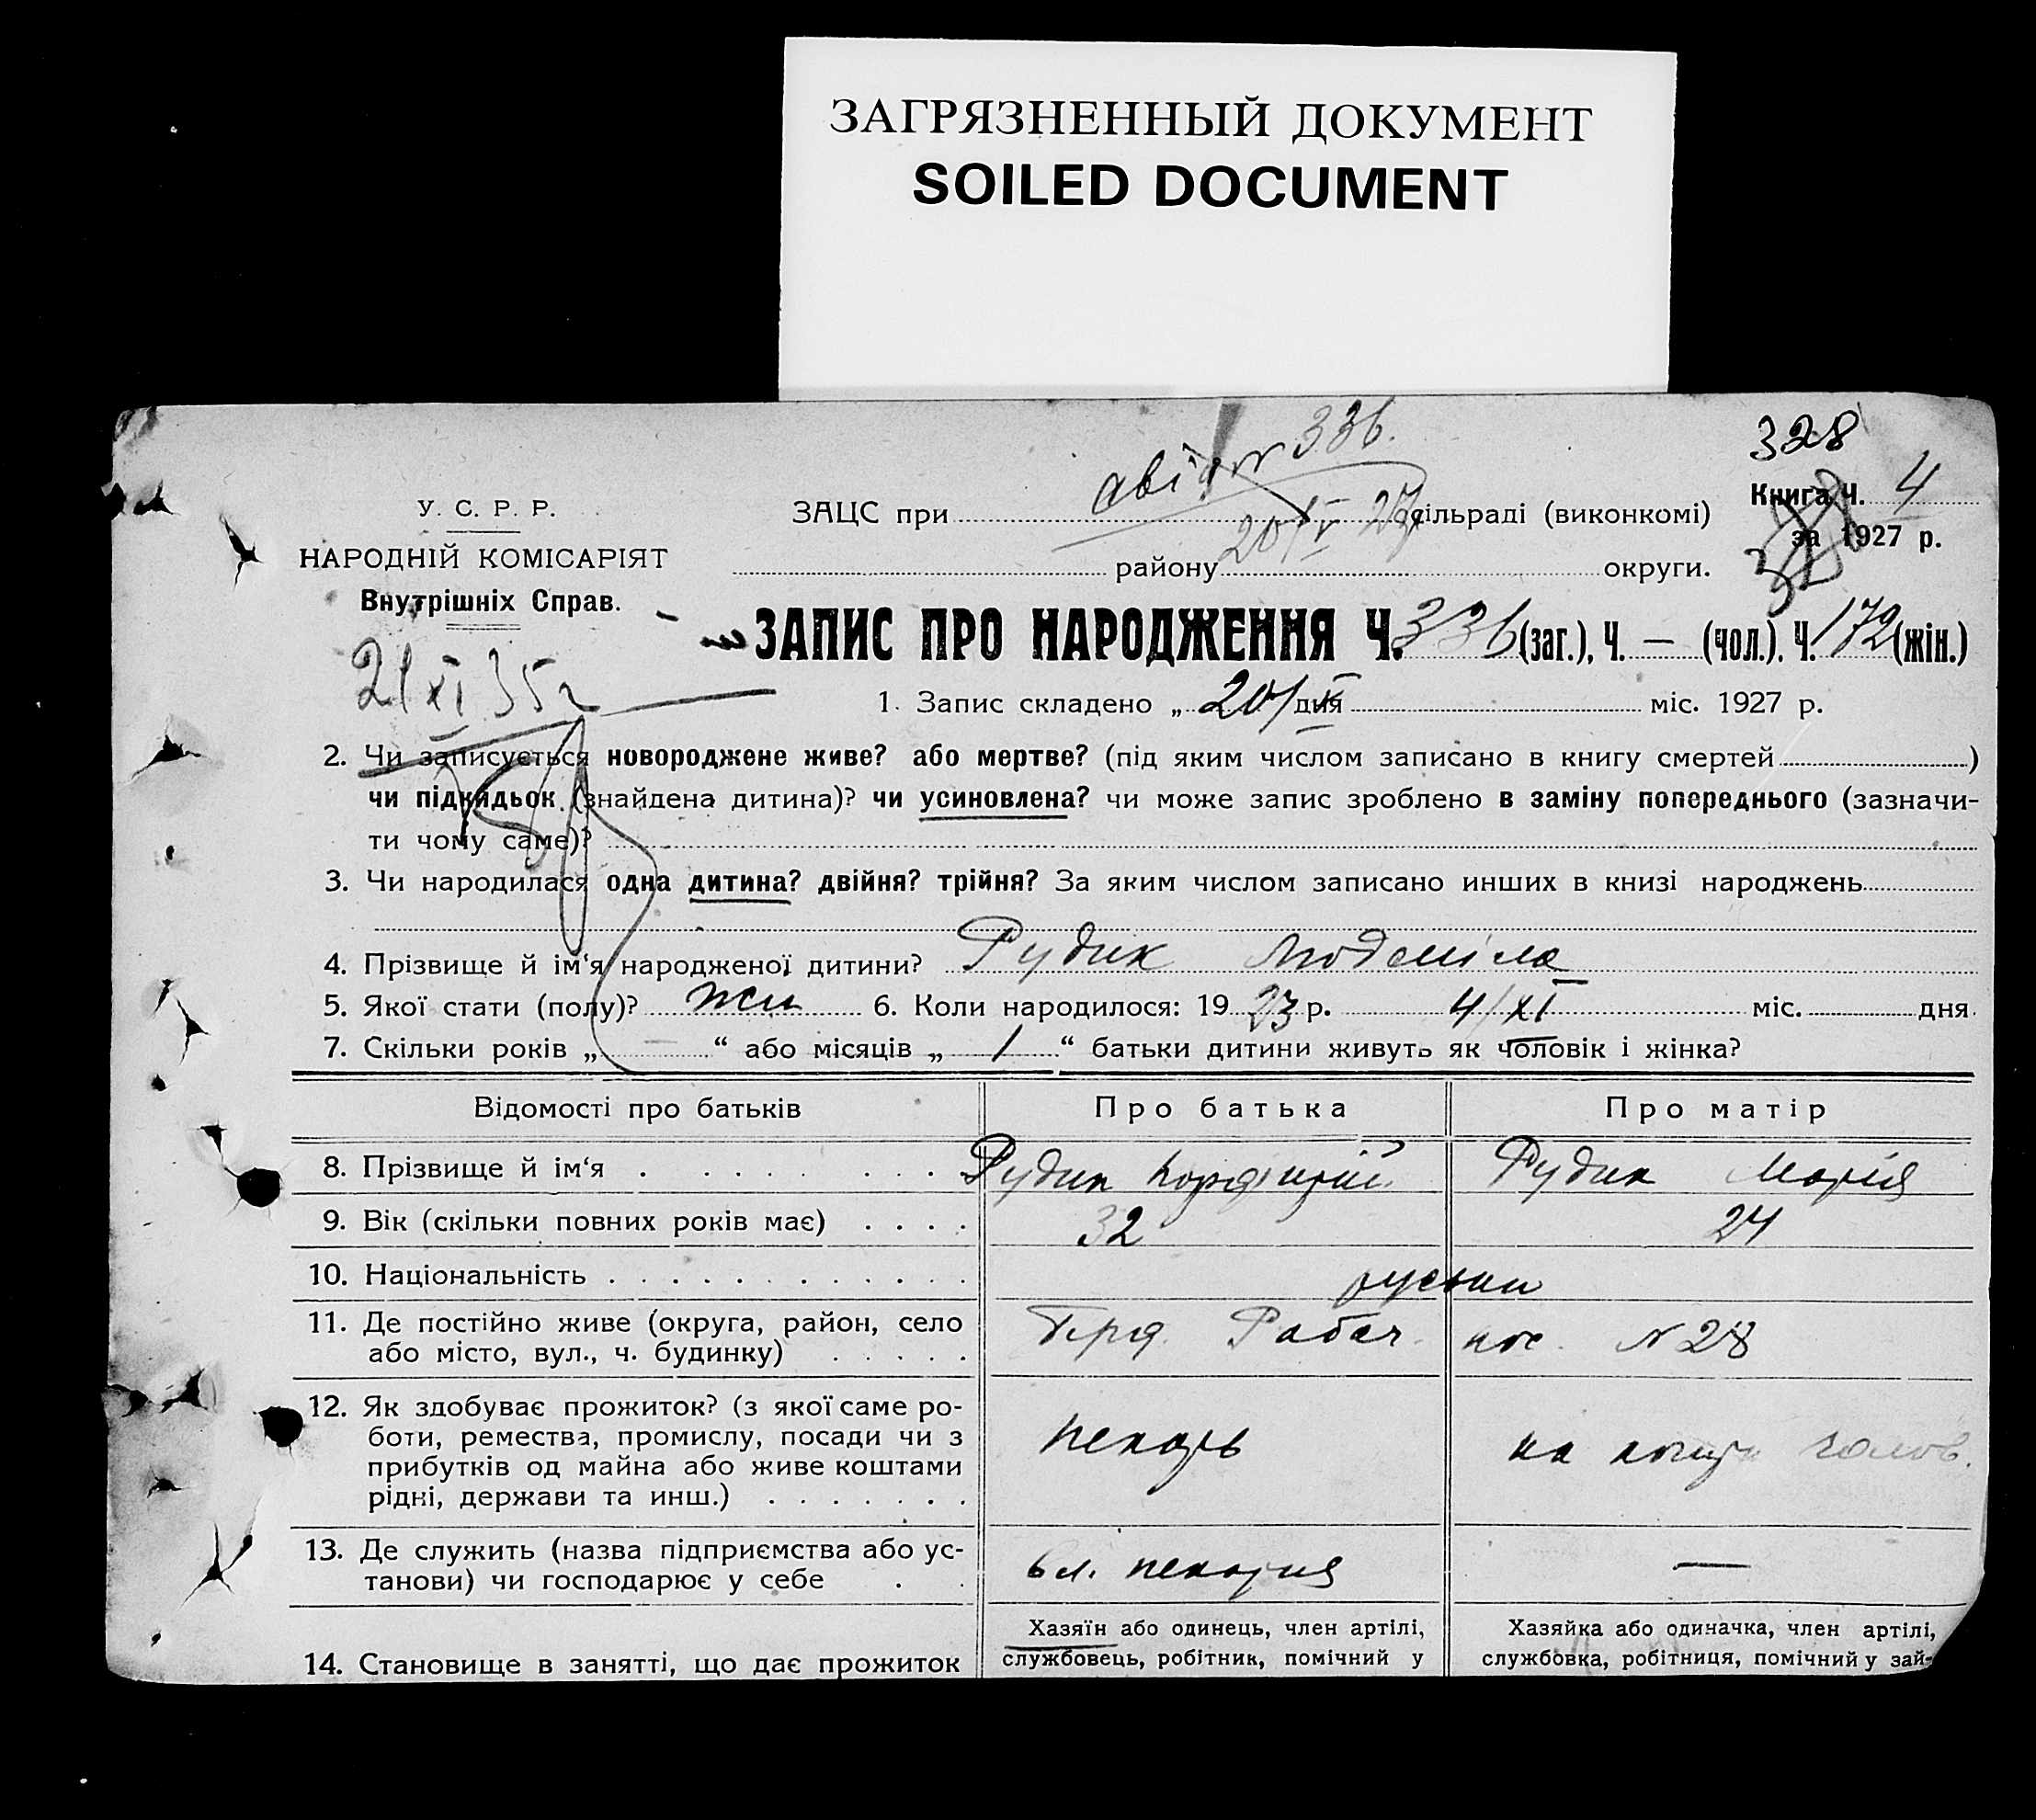 ЗАГРЯЗНЕННЫЙ ДОКУМЕНТ
SOILED DOCUMENT
328
336.
Книга Ч. 4
за 1927 р.
У. С. Р. Р.
НАРОДНІЙ КОМІСАРІЯТ
Внутрішніх Справ.
21 XI 35 г
ЗАЦС при сільраді (виконкомі)
20/V 27
району округи.
ЗАПИС ПРО НАРОДЖЕННЯ Ч. 336 (заг.), Ч. — (чол.), Ч. 172 (жін.)
1. Запис складено „ 20/V дня міс. 1927 р.
2. Чи записується новороджене живе? або мертве? (під яким числом записано в книгу смертей )
чи підкидьок (знайдена дитина)? чи усиновлена? чи може запис зроблено в заміну попереднього (зазначи-
ти чому саме)?
3. Чи народилася одна дитина? двійня? трійня? За яким числом записано инших в книзі народжень
4. Прізвище й ім‘я народженої дитини? Рудик Людміла
5. Якої стати (полу)? жін 6. Коли народилося: 19 23 р. 4/XI міс. дня
7. Скільки років „ — “ або місяців „ 1 “ батьки дитини живуть як чоловік і жінка?
Відомості про батьків Про батька Про матір
8. Прізвище й ім‘я Рудик Рудик Марія
9. Вік (скільки повних років має) 32 24
10. Національність
11. Де постійно живе (округа, район, село
або місто, вул., ч. будинку) Рабоч. пос. N 28
12. Як здобуває прожиток? (з якої саме ро-
боти, ремества, промислу, посади чи з
прибутків од майна або живе коштами
рідні, держави та инш.) пекарь на кошти чолов.
13. Де служить (назва підприємства або ус-
танови) чи господарює у себе вл. пекарня —
14. Становище в занятті, що дає прожиток
Хазяїн або одинець, член артілі,
службовець, робітник, помічний у
Хазяйка або одиначка, член артілі,
службовка, робітниця, помічний у зай-